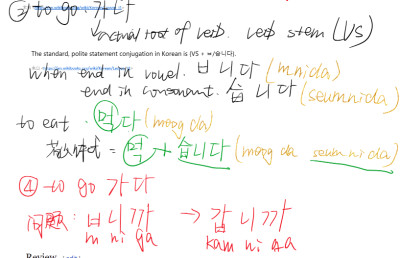 ③ to go 가다
actual root of verb. verb stem (VS)
The standard, polite statement conjugation in Korean is (VS + ㅂ/습니다).
when end in vowel. ㅂ니다 (mnida)
end in consonant. 습니다 (seumnida)
to eat. 먹다 (meog da)
= 먹 + 습니다 (meog da seumnida)
④ to go 가다
问题: ㅂ니까 → 갑니까
m ni ga kam ni
Review